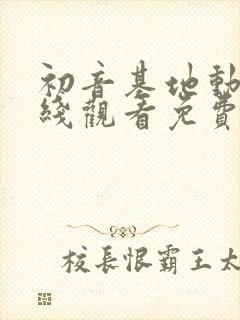 初音基地動
綫觀看免費
校長恨霸王太